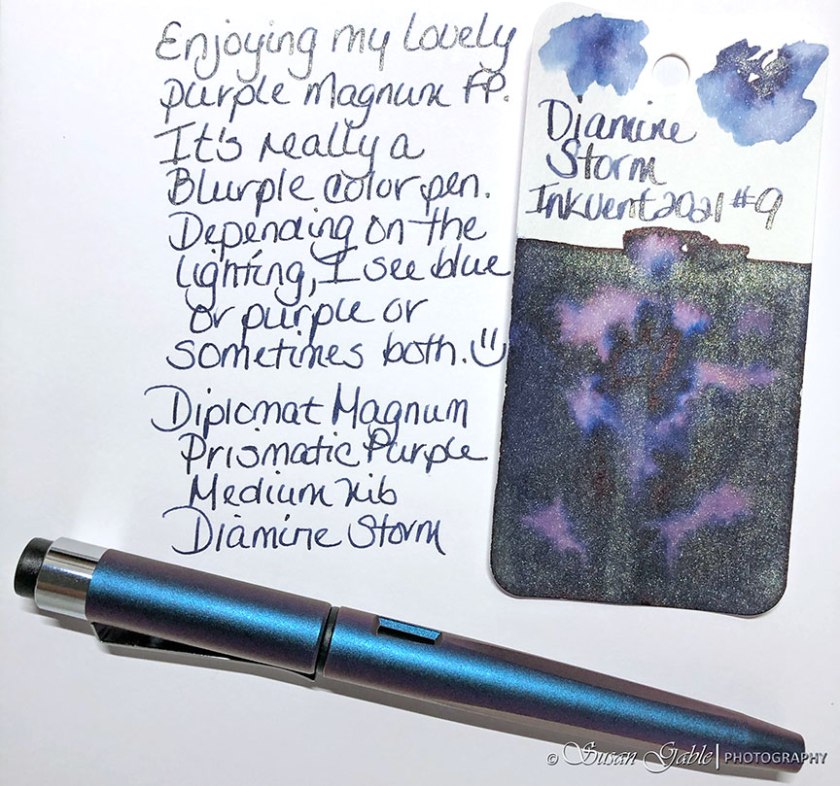 Enjoying my lovely
purple Magnum FP.
It's really a
Blurple color pen.
Depending on the
lighting, I see blue
or purple or
sometimes both.
Diplomat Magnum
Prismatic Purple
Medium nib
Diamine Storm
Diamine
Storm
Inkvent 2021 #9
© Susan Gable | PHOTOGRAPHY